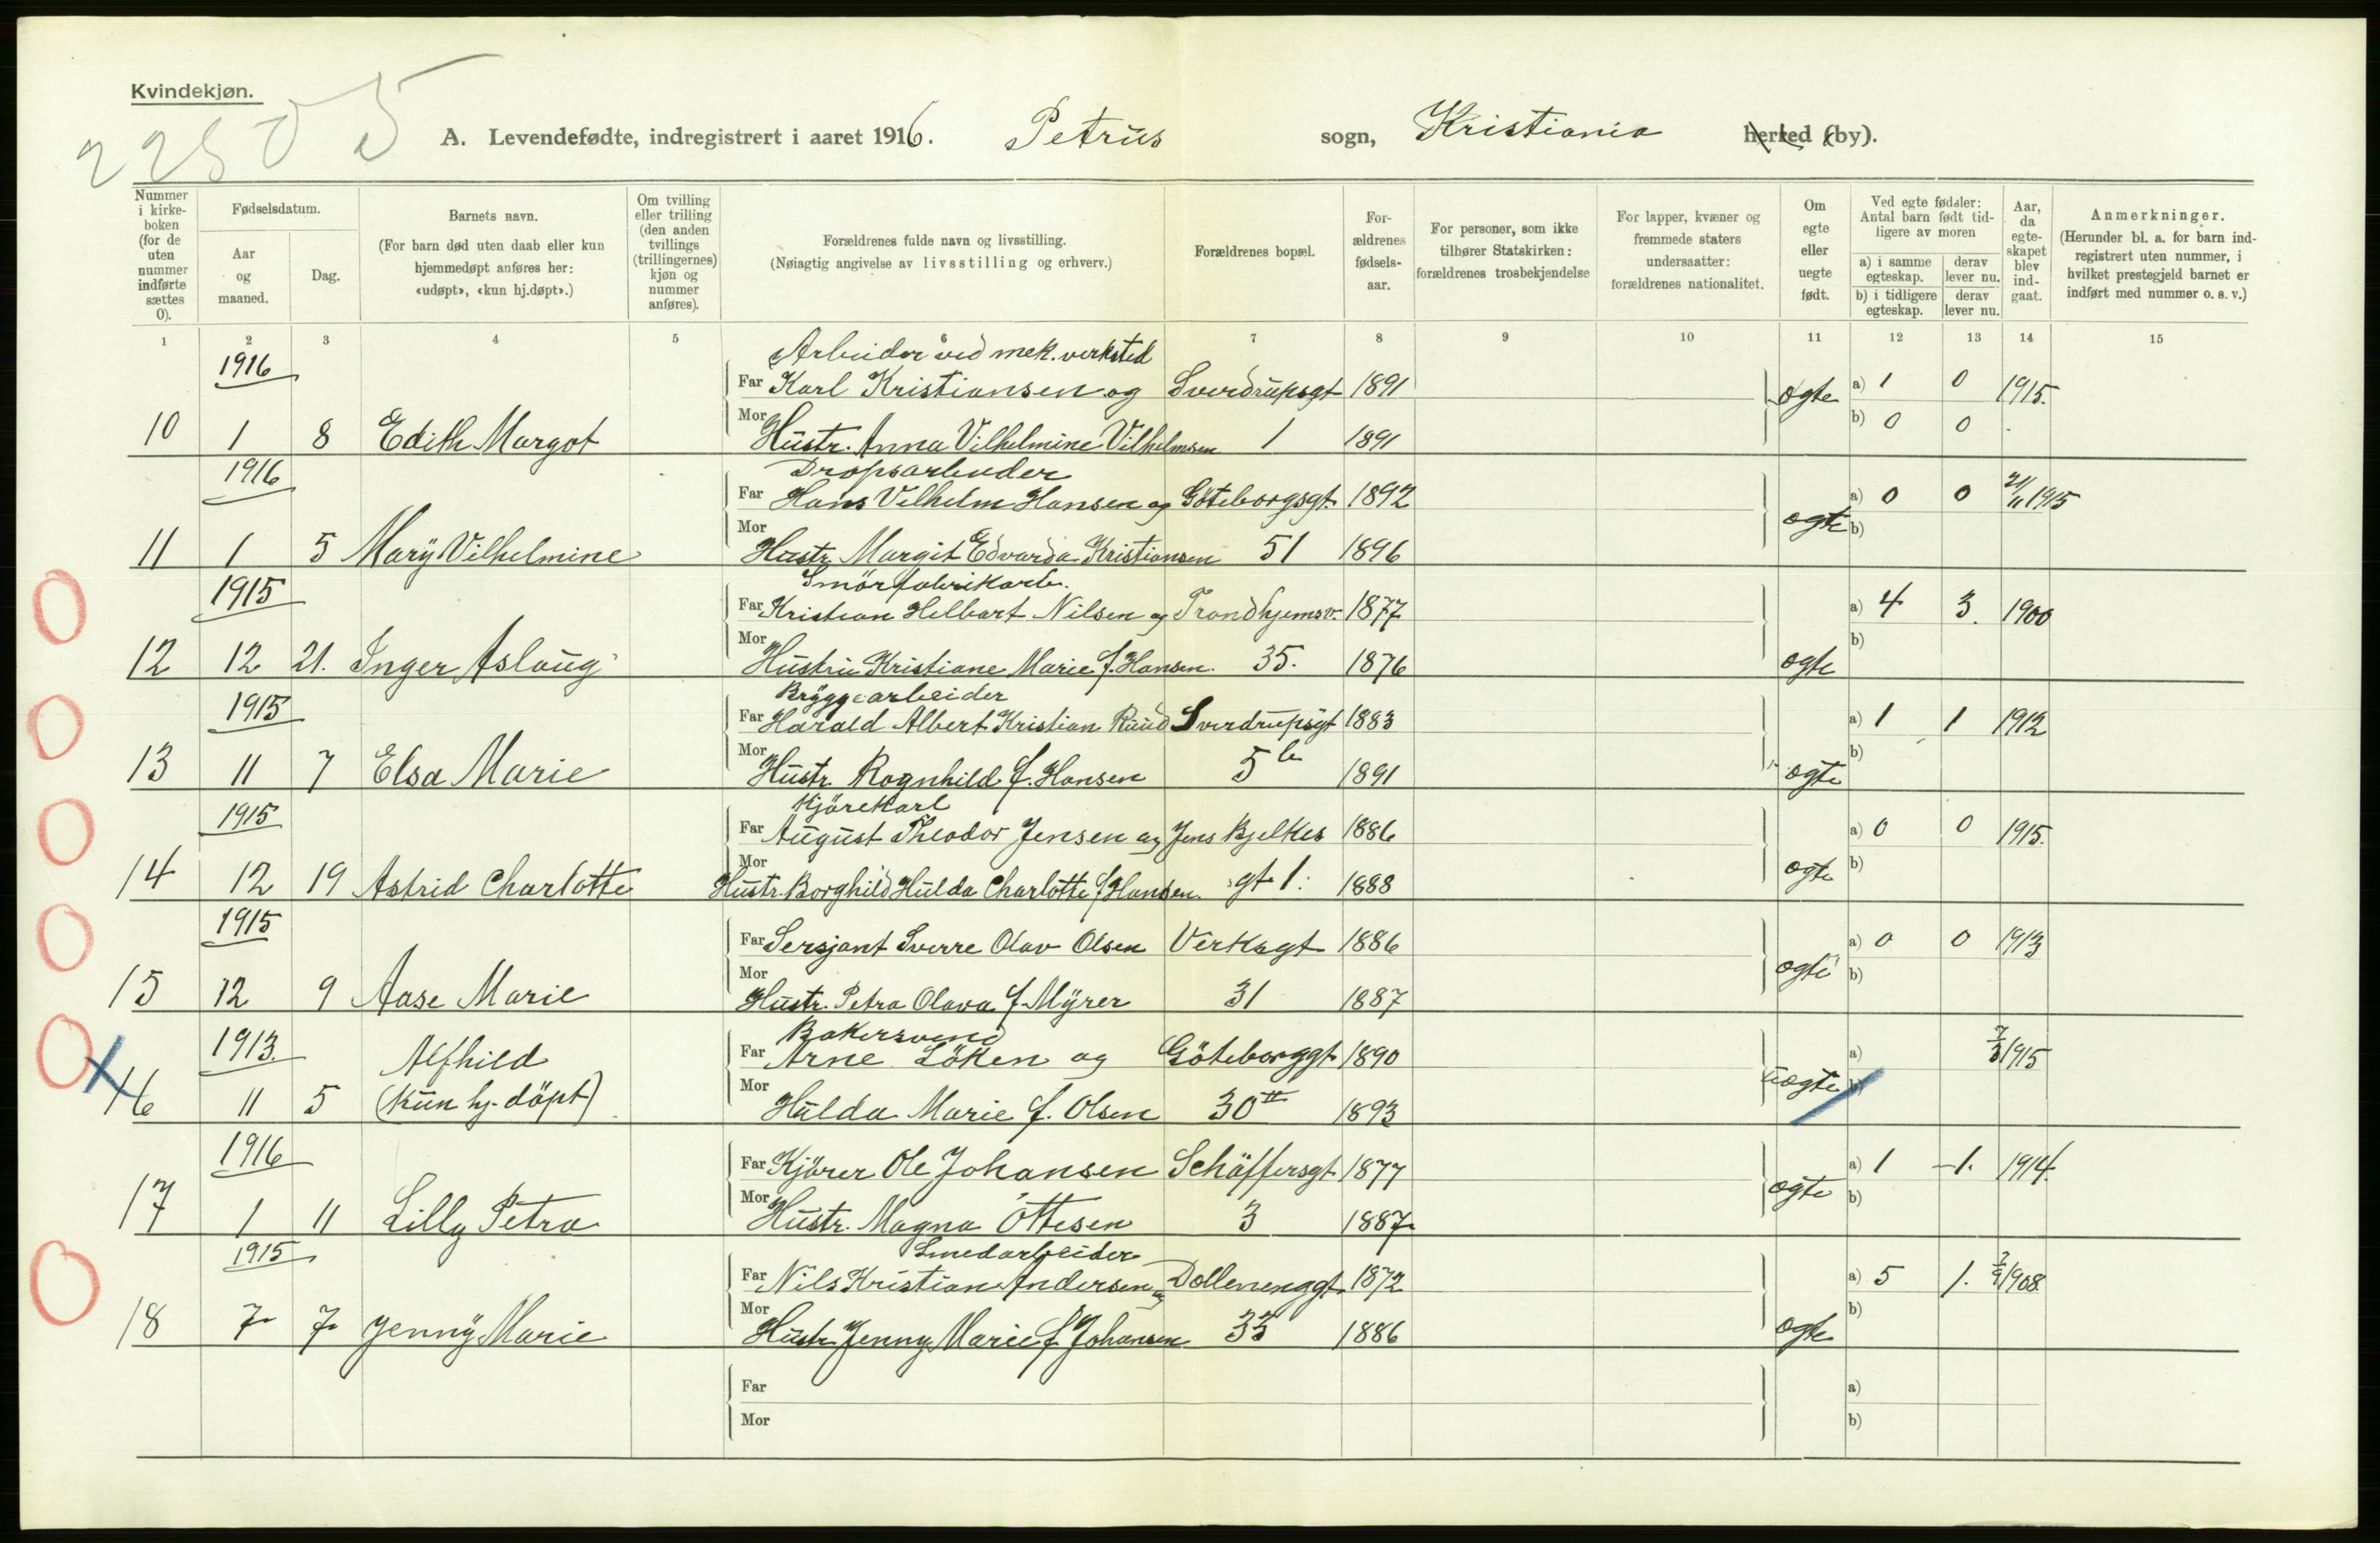 Kvindekjøn.
22505
A. Levendefødte, indregistrert i aaret 1916. Petrus sogn, Kristiania herred (by).
Nummer i kirkeboken (for de uten nummer indførte sættes 0).
Fødselsdatum.
Aar og maaned.
Dag.
Barnets navn.
(For barn død uten daab eller kun hjemmedøpt anføres her: «udøpt», «kun hj.døpt».)
Om tvilling eller trilling (den anden tvillings (trillingernes) kjøn og nummer anføres).
Forældrenes fulde navn og livsstilling.
(Nøiagtig angivelse av livsstilling og erhverv.)
Forældrenes bopæl.
For-
ældrenes
fødsels-
aar.
For personer, som ikke
tilhører Statskirken:
forældrenes trosbekjendelse
For lapper, kvæner og
fremmede staters
undersaatter:
forældrenes nationalitet.
Om
egte
eller
uegte
født.
Ved egte fødsler:
Antal barn født tid-
ligere av moren
a) i samme egteskap.
derav lever nu.
b) i tidligere egteskap.
derav lever nu.
Aar, da egte-skapet blev ind-gaat.
Anmerkninger.
(Herunder bl. a. for barn ind-
registrert uten nummer, i
hvilket prestegjeld barnet er
indført med nummer o. s. v.)
1 2 3 4 5 6 7 8 9 10 11 12 13 14 15
1916 Arbeider ved mek. verksted
Far Karl Kristiansen og Sverdrupsgt 1891 egte a) 1 0 1915.
10 1 8 Edith Margot Mor Hustr. Anna Vilhelmine Vilhelmsen 1 1891 b) 0 0
1916 Dropsarbeider
Far Hans Vilhelm Hansen og Göteborgsgt. 1892 egte a) 0 0 21/11 1915
11 1 5 Marÿ Vilhelmine Mor Hustr. Margit Edvarda Kristiansen 51 1896 b)
1915 Smörfabrikarb.
Far Kristian Helbart Nilsen og Trondhjemsv. 1877 a) 4 3. 1900
12 12 21. Inger Aslaug Mor Hustru Kristiane Marie f. Hansen. 35. 1876 egte b)
1915 Bryggearbeider
Far Harald Albert Kristian Ruud Sverdrupsgt 1883 a) 1 1 1912
13 11 7 Elsa Marie Mor Hustr. Ragnhild f. Hansen 5b 1891 egte b)
1915 Kjörekarl
Far August Theodor Jensen og Jens Bjelkes 1886 a) 0 0 1915.
14 12 19 Astrid Charlotte Mor Hustr. Borghild Hulda Charlotte f. Hansen. gt 1. 1888 egte b)
1915 Far Sersjant Sverre Olav Olsen Verksgt 1886 a) 0 0 1913
15 12 9 Aase Marie Mor Hustr. Petra Olava f. Mÿrer 31 1887 egte b)
1913. Bakersvend
Alfhild Far Arne Löken og Göteborggt 1890 a) 7/3 1915
16 11 5 (kun hj. döpt) Mor Hulda Marie f. Olsen 30 II 1893 uegte b)
1916 Far Kjörer Ole Johansen Schäffersgt 1877 a) 1 - 1. 1914.
17 1 11 Lilly Petra Mor Hustr. Magna Ottesen 3 1887 egte b)
1915 Smedarbeider
Far Nils Kristian Andersen og Dællenenggt. 1872 a) 5 1. 2/9 1908
18 7 7 Jennÿ Marie Mor Hustr. Jenny Marie f. Johansen 33 1886 egte b)
Far a)
Mor b)